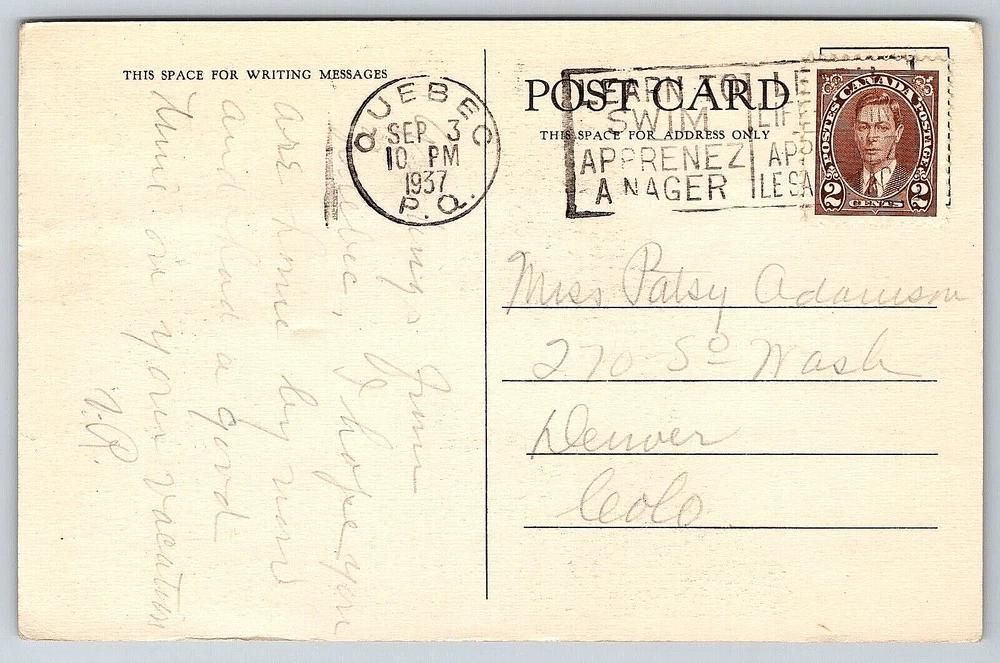 THIS SPACE FOR WRITING MESSAGES
from
I hope you
are home by now
and had a good
time on your vacation
V.P.
QUEBEC
SEP 3
10 PM
1937
P.Q.
POST CARD
THIS SPACE FOR ADDRESS ONLY
LEARN TO
SWIM
APPRENEZ
A NAGER
POSTES CANADA POSTAGE
2 CENTS 2
Miss Patsy Adamson
270 So Wash
Denver
Colo